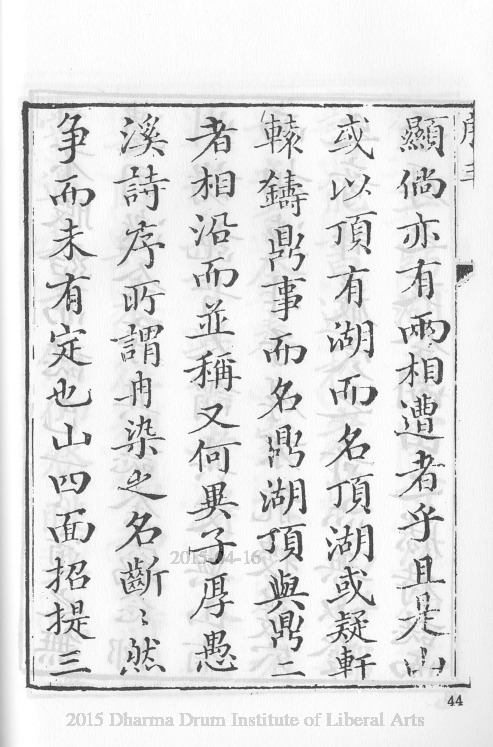 顯倘亦有兩相遭者乎且是山
或以頂有湖而名頂湖或疑軒
轅鑄鼎事而名鼎湖頂與鼎二
者相沿而並稱又何異子厚愚
溪詩序所謂冉染之名齗〻然
争而未有定也山四面招提三
44
2015-04-16
2015 Dharma Drum Institute of Liberal Arts